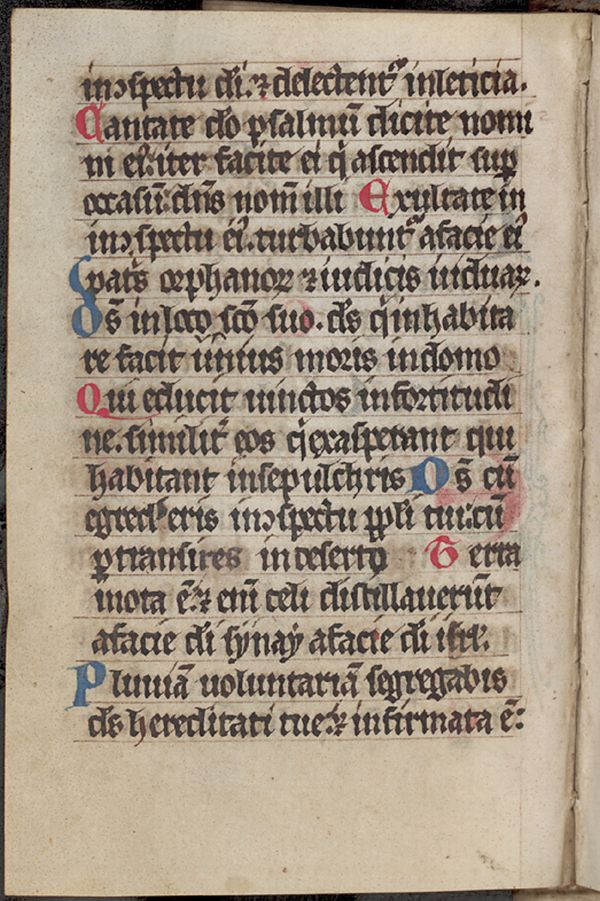 in ↄspectu di. ⁊ delectent᷑ in leticia.
Cantate dō psalmū dicite nomi
ni eiꝰ. iter facite ei q̇ ascendit sup̱
occasū. dn̄s nom̄ illi Exultate in
in ↄspectu eiꝰ. turbabunt᷑ a facie eiꝰ
pat̄s orphanoꝝ ⁊ iudicis uiduaꝝ.
Ds̄ in loco sc̄o suo. ds̄ q̇ inhabita
re facit uniꝰus moris in domo
Qui educit uinctos in fortitudi
ne. similit᷑ eos q̇ exasperant qui
habitant in sepulchris Ds̄ cū
egredeꝛeris in ↄspectu pp̄li tui: cū
ꝑtransires in deserto Terra
mota ē. ⁊ enī celi distillauerūt
a facie di synay a facie di isrl̓.
Pluuiā uoluntariā segregabis
ds̄ hereditati tue. ⁊ infirmata ē: